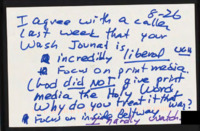 8-26
I agree with a caller
last week that your
Wash Journal is
incredibly liberal
Focus on print media.
(God did NOT give print
media the Holy Word
Why do you treat it that way?
Focus on inside Beltway
I hardly watch